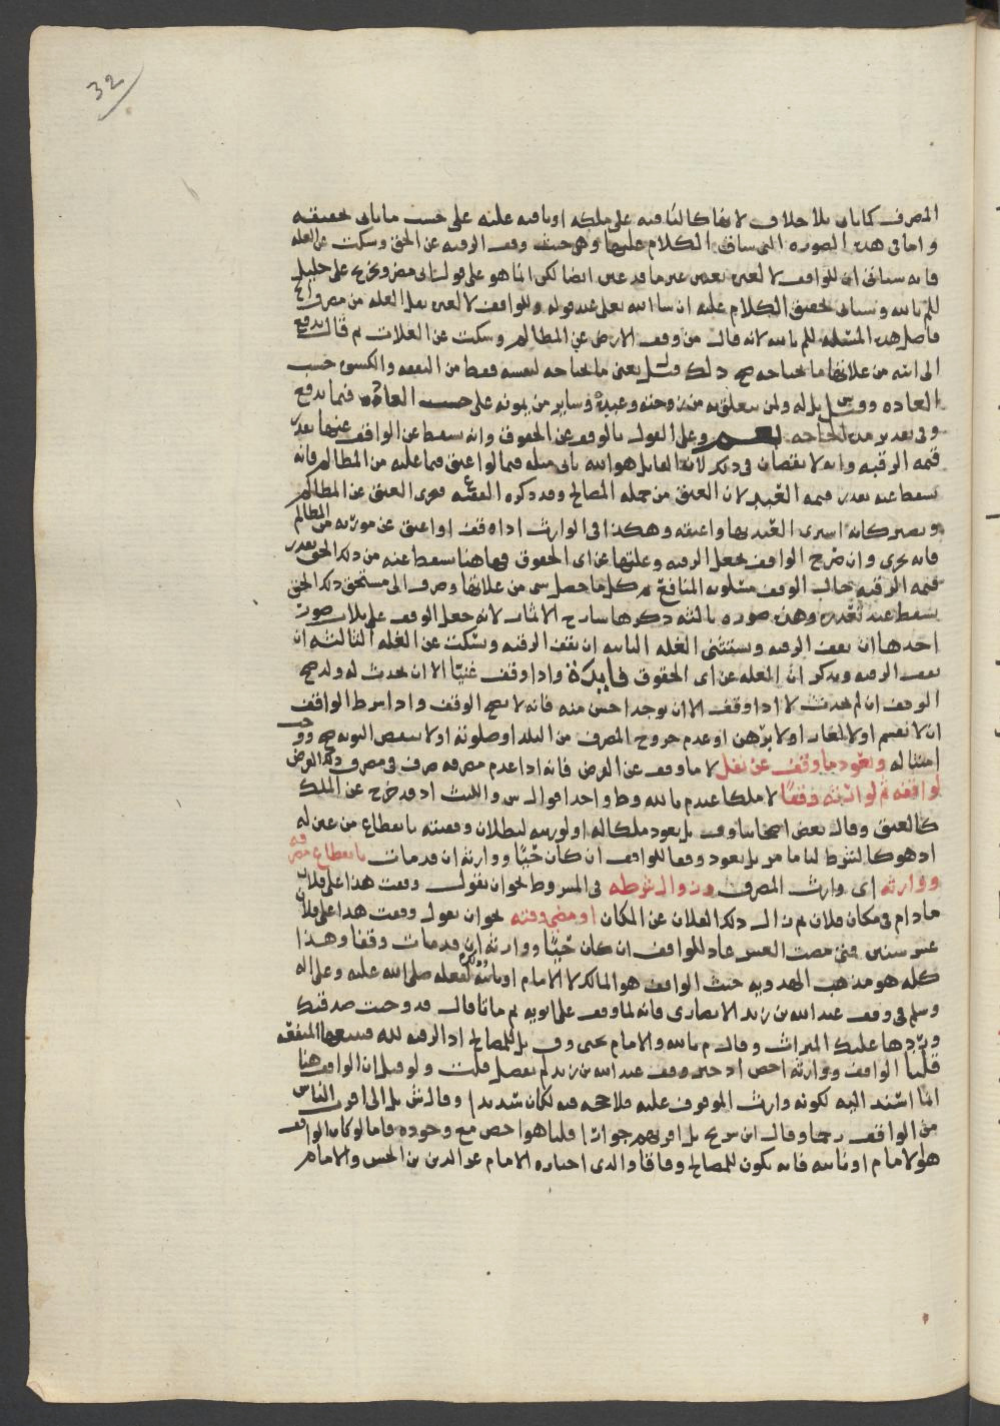 32
المصرف كما ياتي بلا خلاف لانها كالباقيه على ملكه او باقيه عليه على حسب ما ياتي تحقيقه
واما في هذه الصوره التي ساق الكلام عليها وهي حيث وقف الرقبه عن الحق وسكت عن الغله
فانه سياتي ان للواقف لا لغيره
للم بالله وسياتي تحقيق الكلام عليه ان شا الله تعلى عند قوله وللواقف لا لغيره نقل الغله من مصرف الخ
فاصل هذه المسئله للم بالله لانه قال من وقف الارض عن المظالم وسكت عن الغلات ثم قال يدفع
الى ابنه من غلاتها ما يحتاجه صح ذلك قيل يعني ما يحتاجه لنفسه فقط من النفقه والكسوه حسب
العاده وقيل بل له ولمن يتعلق به من زوجته وعبيده وساير من يمونه على حسب العاده فيما يدفع
وفي تقدير مده الحاجه نعم وعلى القول بالوقف عن الحقوق وانه يسقط عن الواقف عنها بقدر
قيمه الرقبه وانه لا نقصان في ذلك لان القايل هو الله ياتي مثله فيما لو اعتق فيما عليه من المظالم فانه
يسقط عنه بقدر قيمه العبد لان العتق من جمله المصالح وقد ذكره الفقيه ع فيجزي العتق عن المظالم
ويصير كانه اشترى العبد بها واعتقه وهكذا في الوارث اذا وقف او اعتق عن مورثه من المظالم
فانه يجزي وان صرح الواقف بجعل الرقبه وغلتها عن اي الحقوق فيها هنا يسقط عنه من ذلك الحق بقدر
قيمه الرقبه حال الوقف مسلوبه المنافع ثم كلما حصل شي من غلاتها وصرف الى مستحق ذلك الحق
يسقط عنه بقدره وهذه صوره ثالثه ذكرها شارح الاثمار لانه جعل الوقف على ثلاث صور
احدها ان يقف الرقبه ويستثني الغله الثانيه ان يقف الرقبه وسكت عن الغله الثالثه ان
يقف الرقبه ويذكر ان الغله عن اي الحقوق فايدة واذا وقف غنيا الا ان يحدث له ولد صح
الوقف ان لم يحدث لا اذا وقف الا ان يوجد احسن منه فانه لا يصح الوقف واذا شرط الواقف
ان لا تقسم او لا تعار او لا يرهن او عدم خروج المصرف من البلد او صلوته او لا ينقص الثوبه صح ووجب
امتثاله ويعود ما وقف عن نفل لا ما وقف عن الفرض فانه اذا عدم مصرفه صرف في مصرف ذلك الفرض
لواقفه ثم لوارثه وقفا لا ملكا عند م بالله وط واحد اقوال ش والليث اذ قد خرج عن الملك
كالعتق وقال بعض اصحابنا وف بل يعود ملكا له او لورثته لبطلان وقفيته بانقطاع من عين له
اذ هو كالشرط لنا ما مر بل يعود وقفا للواقف ان كان حيا ووارثه ان قد مات بانقطاع مصرفه
ووارثه اي وارث المصرف وزوال شرطه في المشروط نحو ان يقول وقفت هذا على فلان
ما دام في مكان فلان ثم زال ذلك الفلان عن المكان او مضى وقته نحو ان يقول وقفت هذا على فلان
عشر سنين فمتى مضت العشر عاد للواقف ان كان حيا ووارثه ان قد مات وقفا وهذا
كله هو مذهب الهدويه حيث الواقف هو المالك لا الامام او نائبه لفعله صلى الله عليه وعلى اله
وسلم في وقف عبد الله بن زيد الانصاري فانه لما وقف على ابويه ثم ماتا قال قد وجبت صدقتك
وردها عليك الميراث وقال م بالله والامام يحيى وف بل للمصالح اذ الرقبه لله
قلنا الواقف ووارثه اخص اذ خبر وقف عبد الله بن زيد لم يفصل قلت ولو قيل ان الواقف هنا
انما اشند اليه لكونه وارث الموقوف عليه فلا حجه فيه لكان شديدا وقال ش بل الى اقرب الناس
من الواقف رحما وقال ابن سريح بل اقربهم جوارا قلنا هو اخص مع وجوده فاما لو كان الواقف
هو الامام او نائبه فانه يكون للمصالح وفاقا والذي اختاره الامام عز الدين بن الحسن والامام